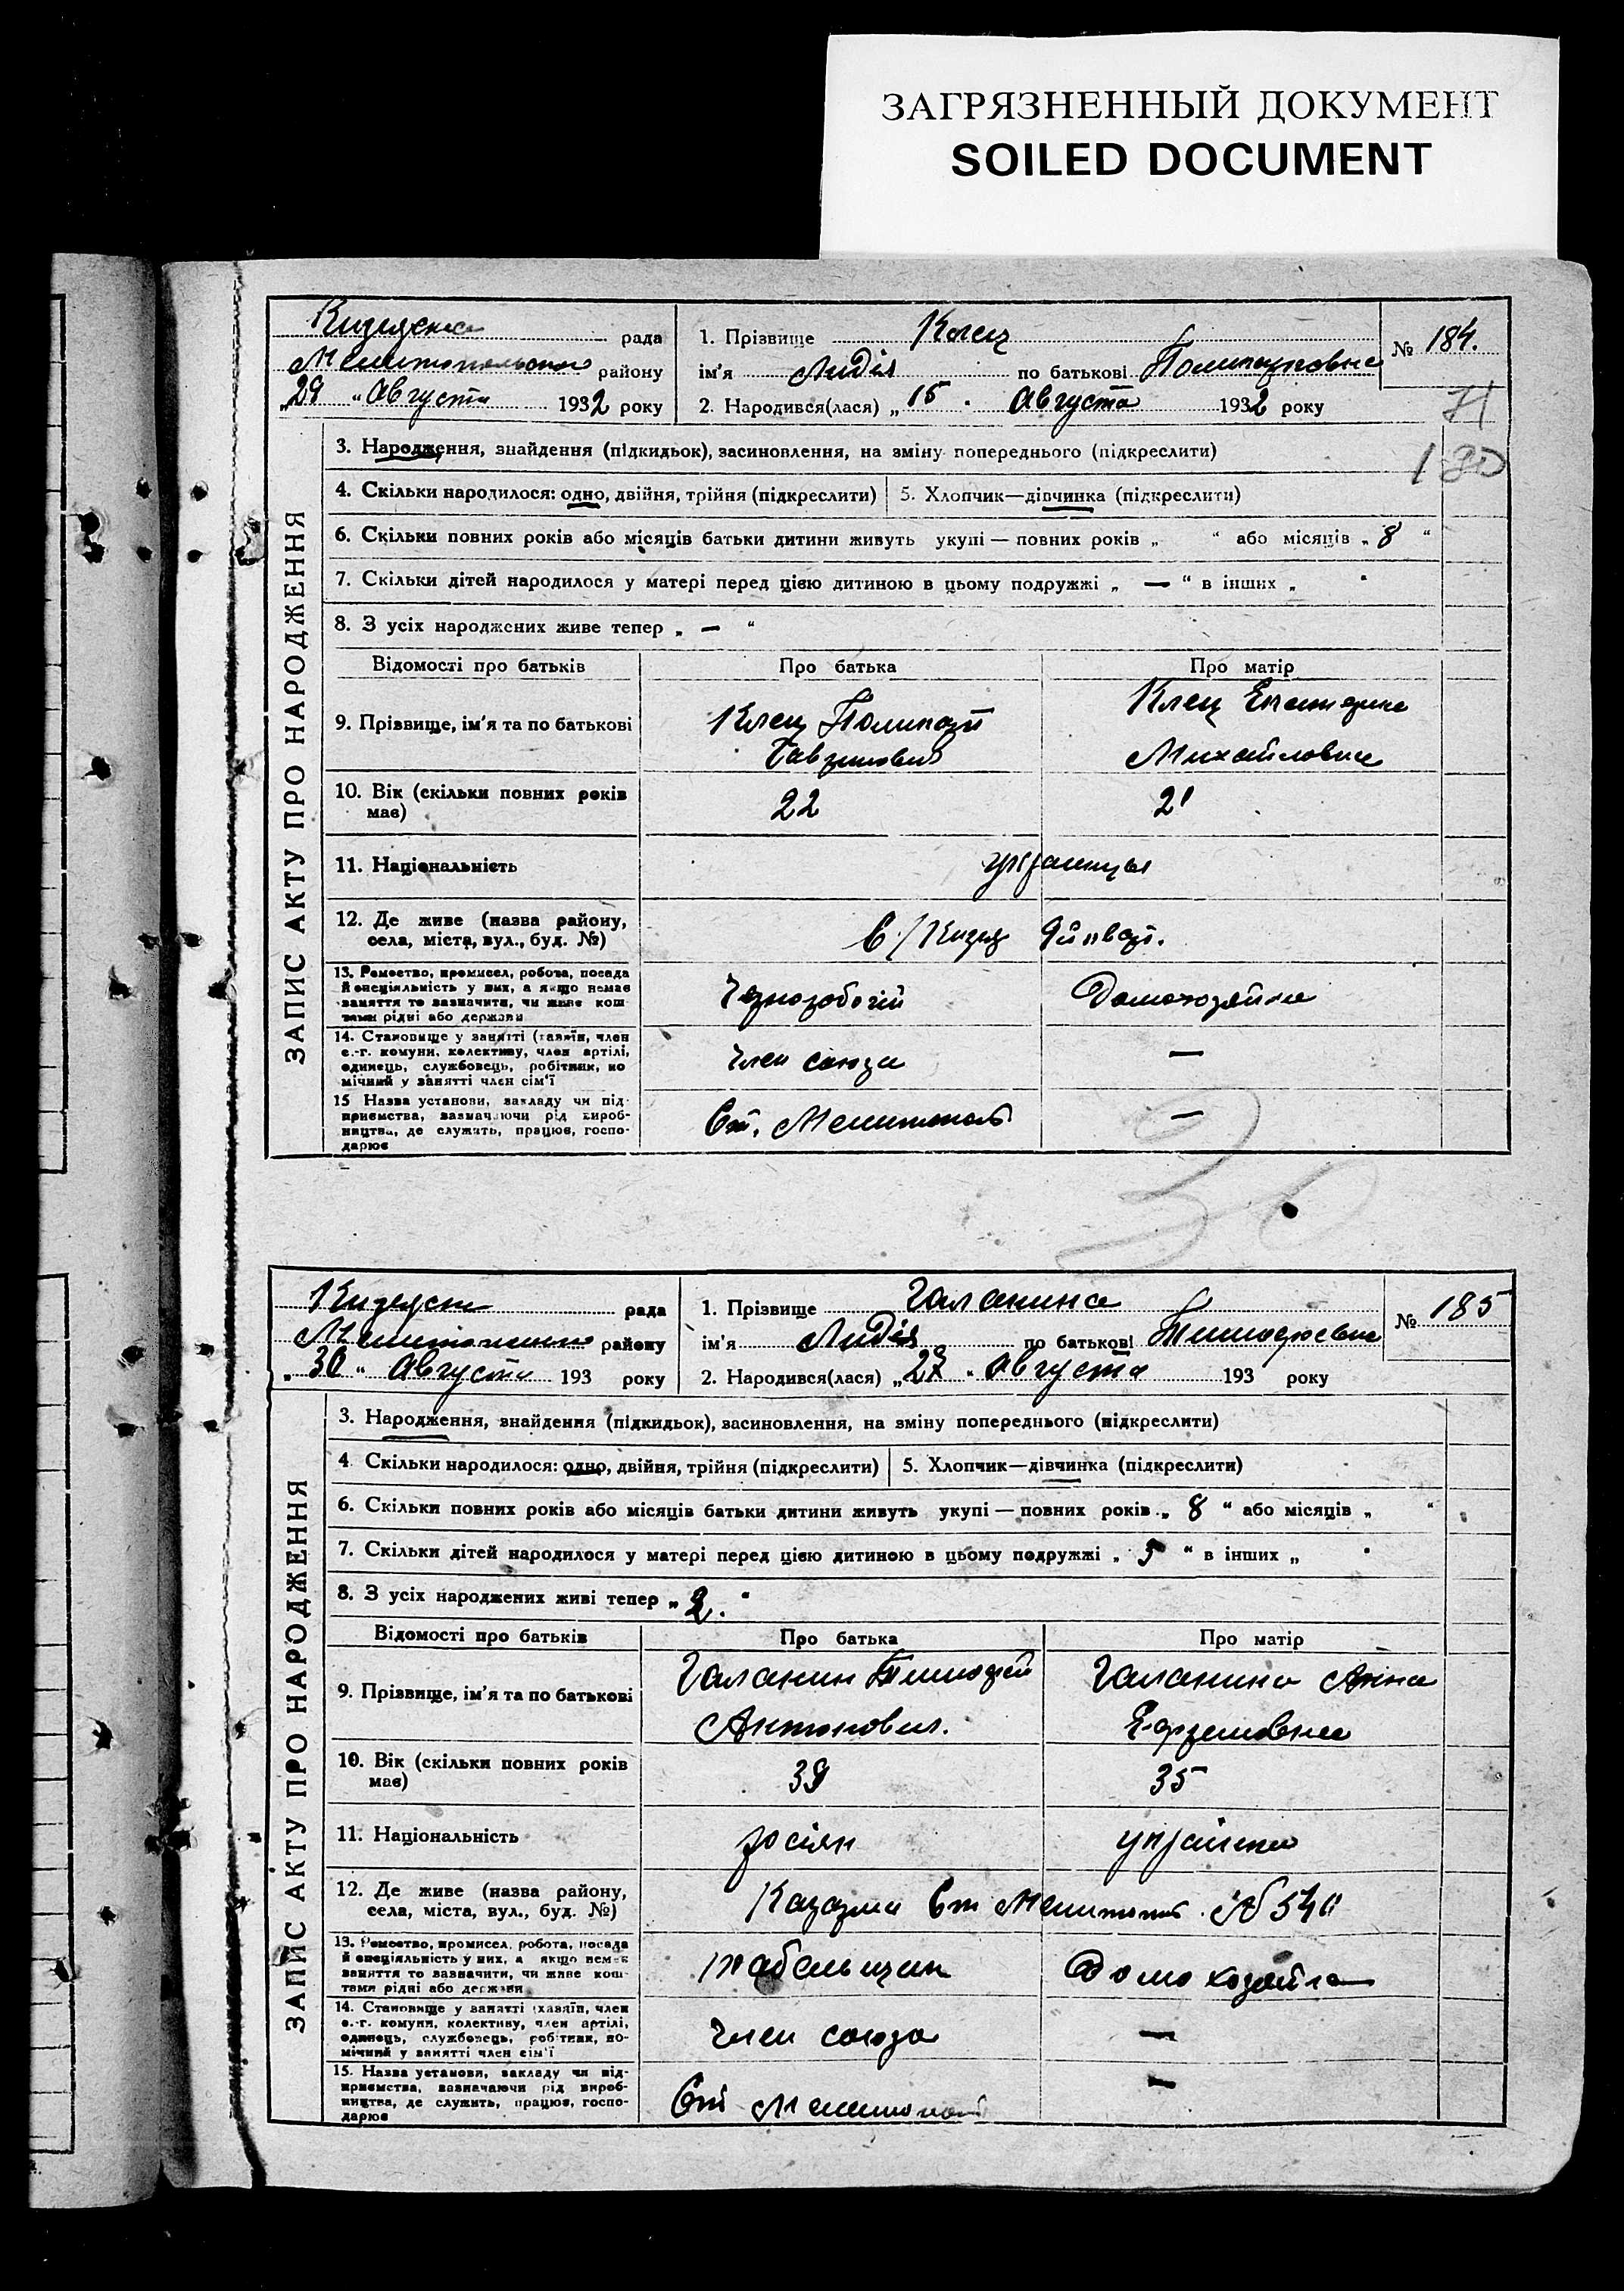 ЗАГРЯЗНЕННЫЙ ДОКУМЕНТ
SOILED DOCUMENT
рада
района району
„29 “ Августа 1932 року
1. Прізвище Клец
ім'я Лидія по батькові
2. Народився(лася) „ 15 . Августа 1932 року
№ 184.
71
180
ЗАПИС АКТУ ПРО НАРОДЖЕННЯ
3. Народження, знайдення (підкидьок), засиновлення, на зміну попереднього (підкреслити)
4. Скільки народилося: одно, двійня, трійня (підкреслити) 5. Хлопчик—дівчинка (підкреслити)
6. Скільки повних років або місяців батьки дитини живуть укупі — повних років „ “ або місяців „ 8 “
7. Скільки дітей народилося у матері перед цією дитиною в цьому подружжі „ — “ в інших „ “
8. З усіх народжених живе тепер „ — “
Відомості про батьків Про батька Про матір
9. Прізвище, ім'я та по батькові Клец Клец
Михайловна
10. Вік (скільки повних років має) 22 21
11. Національність украинцы
12. Де живе (назва району, села, міста, вул., буд. №)
13. Ремество, промисел, робота, посада й спеціяльність у них, а якщо немає заняття то зазначити, чи живе коштами рідні або держави Домохозяйка
14. Становище у занятті (хазяїн, член с.-г. комуни, колективу, член артілі, одинець, службовець, робітник, помічний у занятті член сім'ї член союза —
15 Назва установи, закладу чи підприємства, зазначаючи рід виробництва, де служить, працює, господарює Ст. Мелитополь —
30
рада
району
„ 30 “ Августа 193 року
1. Прізвище Галанина
ім'я Лидія по батькові Тимофеевна
2. Народився(лася) „ “ Августа 193 року
№ 185
ЗАПИС АКТУ ПРО НАРОДЖЕННЯ
3. Народження, знайдення (підкидьок), засиновлення, на зміну попереднього (підкреслити)
4. Скільки народилося: одно, двійня, трійня (підкреслити) 5. Хлопчик—дівчинка (підкреслити)
6. Скільки повних років або місяців батьки дитини живуть укупі — повних років „ 8 “ або місяців „ “
7. Скільки дітей народилося у матері перед цією дитиною в цьому подружжі „ “ в інших „ “
8. З усіх народжених живі тепер „ 2. “
Відомості про батьків Про батька Про матір
9. Прізвище, ім'я та по батькові Галанин Тимофей Галанина Анна
Антонович. Ефремовна
10. Вік (скільки повних років має) 39 35
11. Національність росіян українка
12. Де живе (назва району, села, міста, вул., буд. №) Казарма Ст Мелитополь №
13. Ремество, промисел, робота, посада й спеціяльність у них, а якщо немає заняття то зазначити, чи живе коштами рідні або держави табельщик Домохозяйка
14. Становище у занятті (хазяїн, член с.-г. комуни, колективу, член артілі, одинець, службовець, робітник, помічний у занятті член сім'ї член союза —
15. Назва установи, закладу чи підприємства, зазначаючи рід виробництва, де служить, працює, господарює Ст Мелитополь —